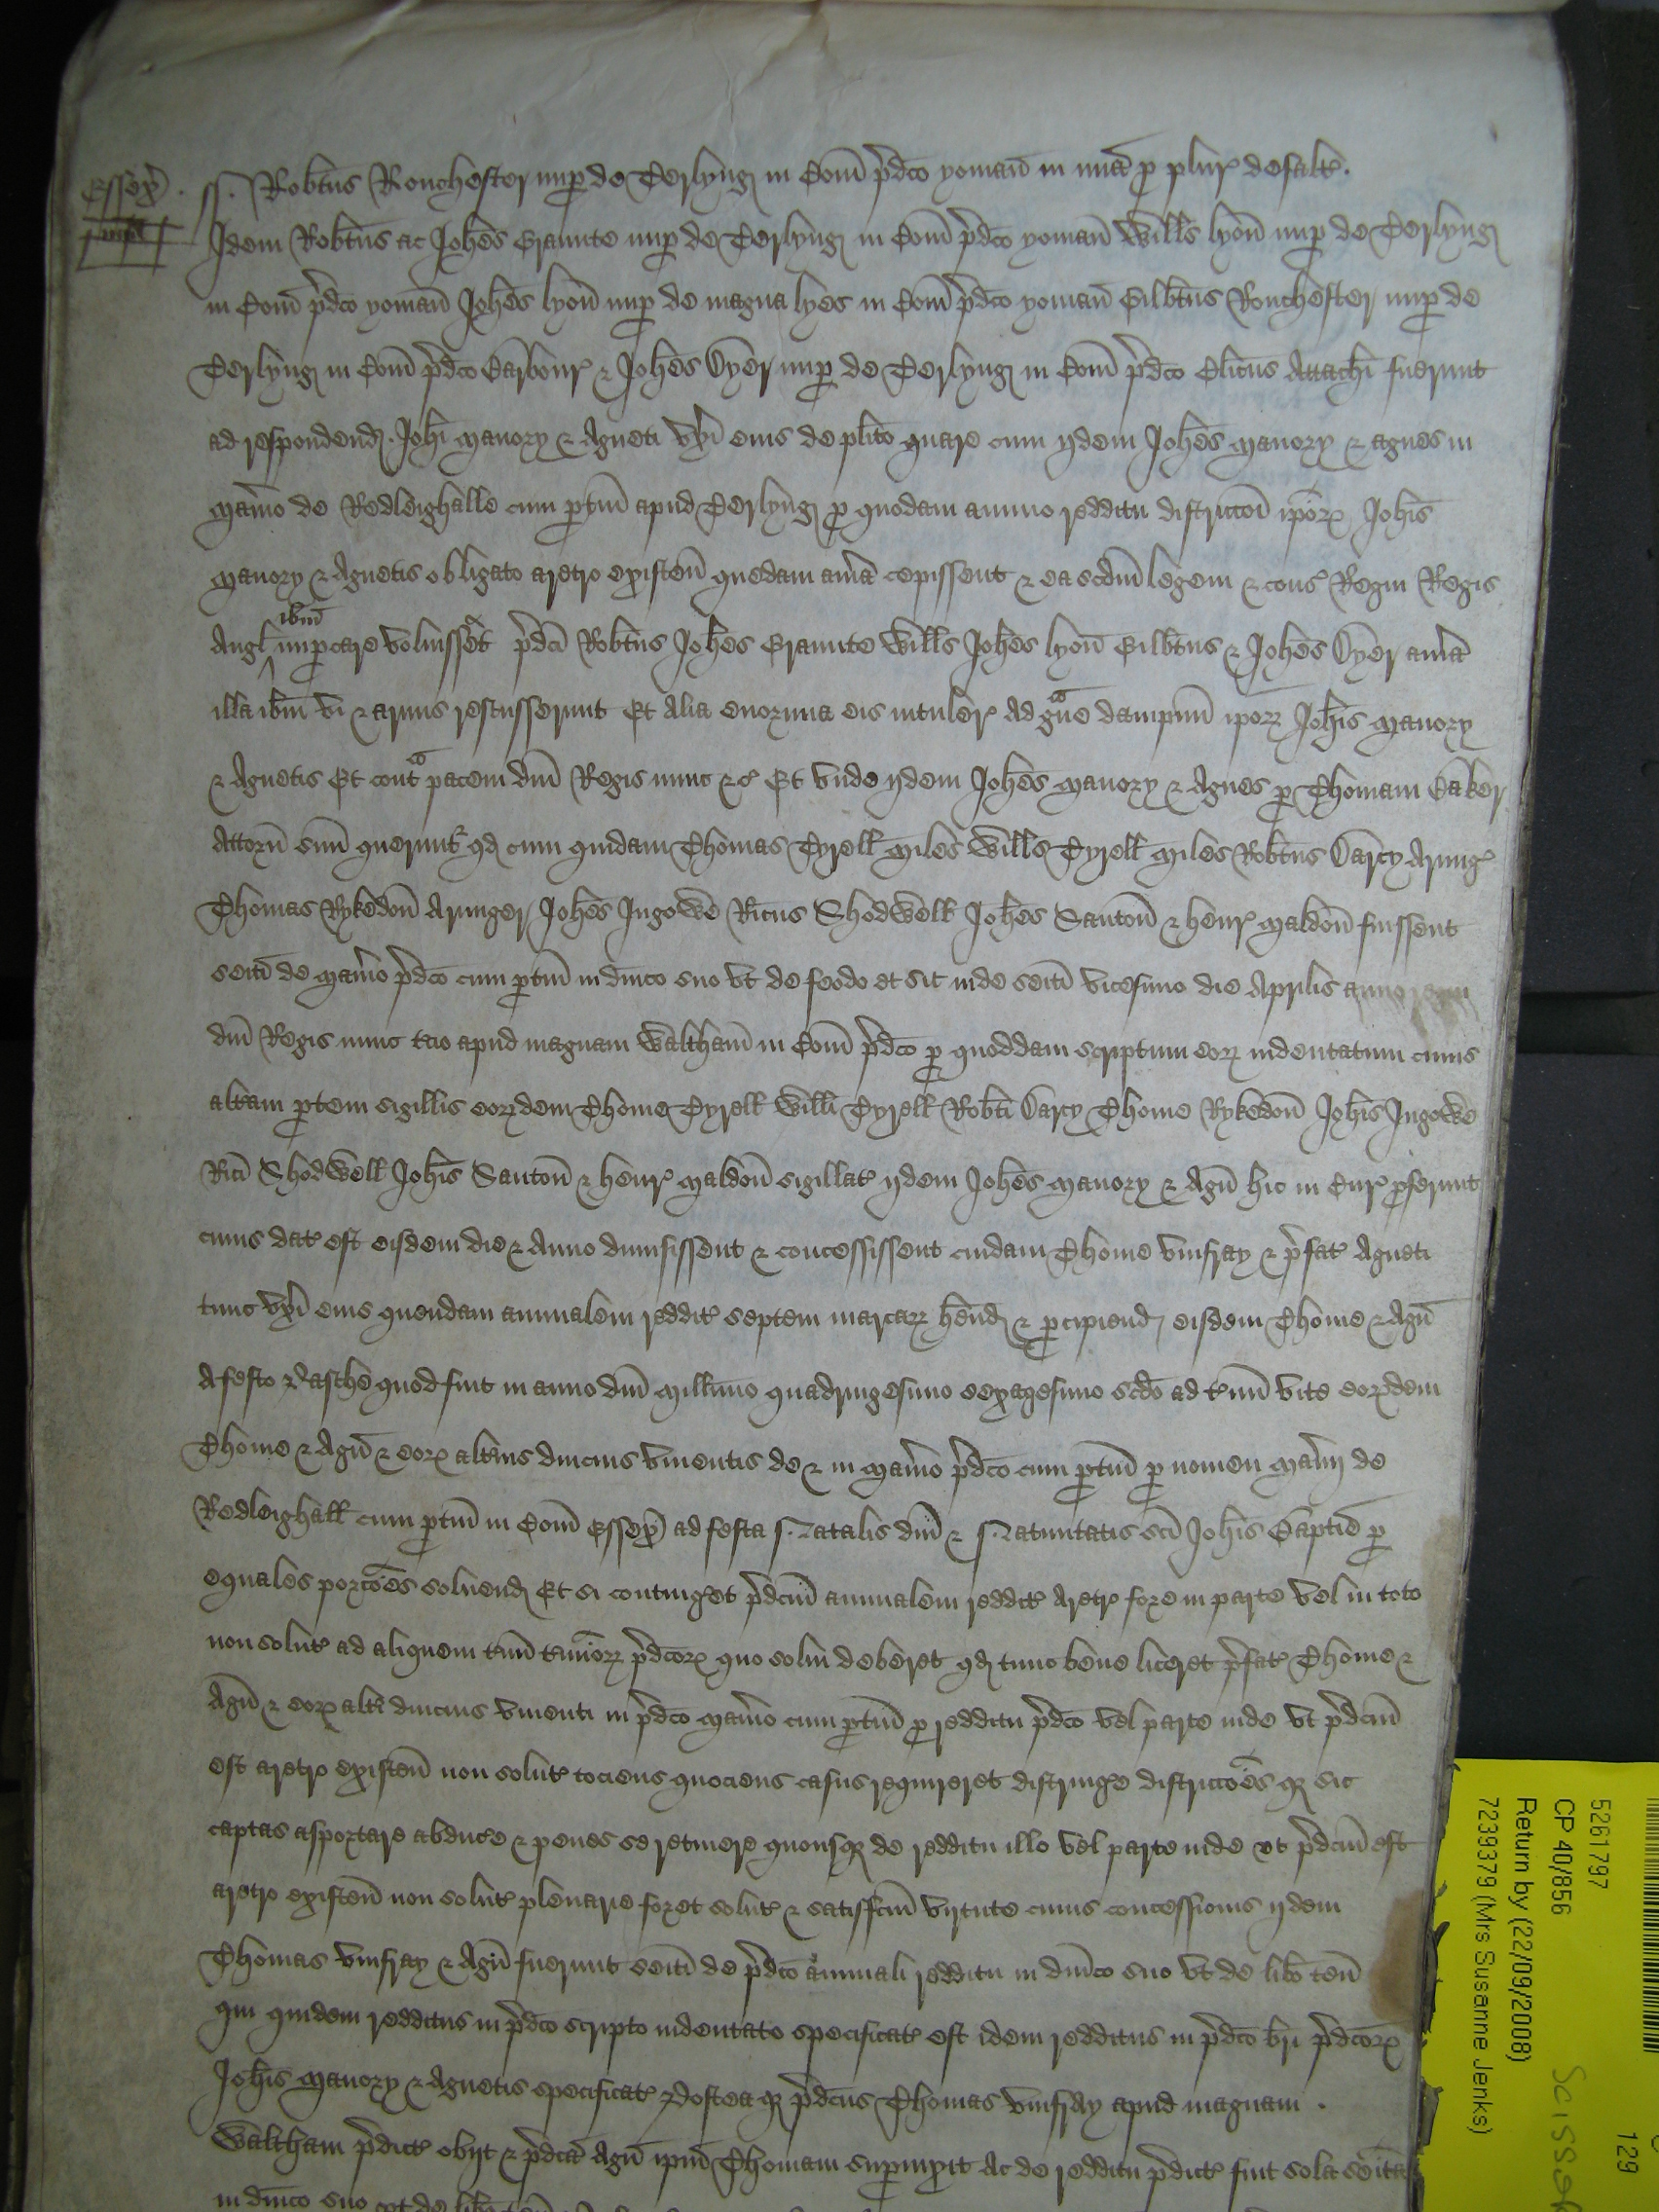 Essex̄ . ss . Rob̄tus Rouchester nup̱ de Terlyng in Com̄ p̄dc̄o yoman̄ in mīa p̱ plur defalt .
Idem Rob̄tus ac Joh̄es Graunte nup̱ de Terlyng in Com̄ p̄dc̄o yoman̄ Will̄s lyon̄ nup̱ de Terlyng
in Com̄ p̄dc̄o yoman̄ Joh̄es lyon̄ nup̱ de magna lyes in Com̄ p̄dc̄o yoman̄ Gilb̄tus Rouchester nup̱ de
Terlyng in Com̄ p̄dc̄o Barbour & Joh̄es Dyer nup̱ de Terlyng in Com̄ p̄dc̄o Cl̄icus Attach̄i fuerunt
ad respondend Joh̄i Manory & Agneti Vx̄i eius de pl̄ito quare cum ijdem Joh̄es Manory & Agnes in
Man̄io de Redleighalle cum p̱tin̄ apud Terlyng p̱ quodam annuo redditu districc̄oi ip̄or Joh̄is
Manory & Agnetis obligato aretro existen̄ quedam aūia cepissent & ea scd̄m legem & cons Regni Regis
Angl ib̄m inp̱care voluissēt p̄dc̄i Rob̄tus Joh̄es Graunte Will̄s Joh̄es lyon̄ Gilb̄tus & Joh̄es Dyer aūia
illa ib̄m vi & armis rescusserunt Et Alia enormia eis intuler Ad gūe dampnū ip̄or Joh̄is Manory
& Agnetis Et cont̄ pacem dn̄i Regis nunc &c̄ Et vnde ijdem Joh̄es Manory & Agnes p̱ Thomam Baker
Attorn̄ suū querunt̄ qd cum quidam Thomas Tyrell Miles Will̄s Tyrell Miles Rob̄tus Darcy Armig
Thomas Rykedon̄ Armiger Joh̄es Ingowe Ric̄us Shodwell Joh̄es Santon̄ & henr Maldon̄ fuissent
seīti de Man̄io p̄dc̄o cum p̱tin̄ in dn̄ico suo vt de feodo et sic inde seīti vicesimo die Aprilis anno regni
dn̄i Regis nunc tc̄io apud magnam Waltham̄ in Com̄ p̄dc̄o p̱ quoddam scriptum eor indentatum cuius
alt̄am p̱tem sigillis eordem Thome Tyrell Will̄i Tyrell Rob̄ti Darcy Thome Rykedon̄ Joh̄is Ingowe
Ric̄i Shodwell Joh̄is Santon̄ & henr Maldon̄ sigillat ijdem Joh̄es Manory & Agn̄ hic in Cur p̱ferunt
cuius dat est eisdem die & Anno dimisissent & concessissent cuidam Thome Vmfray & p̄fat Agneti
tunc vx̄i eius quendam annualem reddit septem marcar h̄end & p̱cipiend eisdem Thome & Agn̄
A festo Pasche quod fuit in anno dn̄i Millimo quadringesimo sexagesimo scd̄o ad t̄min̄ vite eordem
Thome & Agn̄ & eor alt̄ius diucius viuentis de & in Man̄io p̄dc̄o cum p̱tin̄ p̱ nomen Man̄ij de
Redleighall cum p̱tin̄ in Com̄ Essex̄ ad festa s. Natalis dn̄i & s. Natiuitatis sc̄i Joh̄is Bapt̄e p̱
equales porcōes soluend Et si continḡet p̄dc̄m annualem reddit Aretr fore in parte vel in toto
non solut ad aliquem t̄min̄ t̄minor p̄dc̄or quo solui deberet qd tunc bene liceret p̄fat Thome &
Agn̄ & eor alt̄i diucius viuenti in p̄dc̄o Man̄io cum p̱tin̄ p̱ redditu p̄dc̄o vel parte inde vt p̄dc̄m
est aretro existen̄ non solut tociens quociens casus requireret distrinḡe districcōes q sic
captas asportare abduc̄e & penes se retinere quousq de redditu illo vel parte inde vt p̄dc̄m est
aretro existen̄ non solut plenarie foret solut & satisfc̄m virtute cuius concessionis ijdem
Thomas Vmfray & Agn̄ fuerunt seīti de p̄dc̄o annuali redditu in dn̄ico suo vt de lib̄o ten̄
qui quidem redditus in p̄dc̄o scripto indentato specificat est idem redditus in p̄dc̄o br̄i p̄dc̄or
Joh̄is Manory & Agnetis specificat Postea q p̄dc̄us Thomas Vmfray apud magnam .
Waltham p̄dict obijt & p̄dc̄a Agn̄ ip̄m Thomam sup̱uixit Ac de redditu p̄dict fuit sola seīta
in dn̄ico suo vt de lib̄o ten̄
5261797
CP 40/856
Return by (22/09/2008)
7239379 (Mrs Susanne Jenks)
129